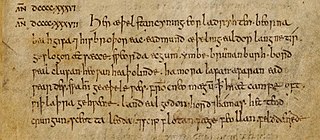 AÑ DCCCC XXXVI
AÑ DCCCC XXXVII Her æþelstan cyning eorla dryhten beorna
beah gifa ⁊ his broþor eac eadmund æþeling ealdor langne tir
geslogon æt sæcce sweorda ecgum ymbe brunanburh bord
weal clufan heowan heaþolinde hamora lafan afaran ead
weardes swa him geæþele wæs from cneo mægum þ hi æt campe oft
wiþ laþra gehwæne land ealgodon hord ⁊ hamas hettend
crungun sceotta leoda ⁊ scip flotan fæge feollan feld